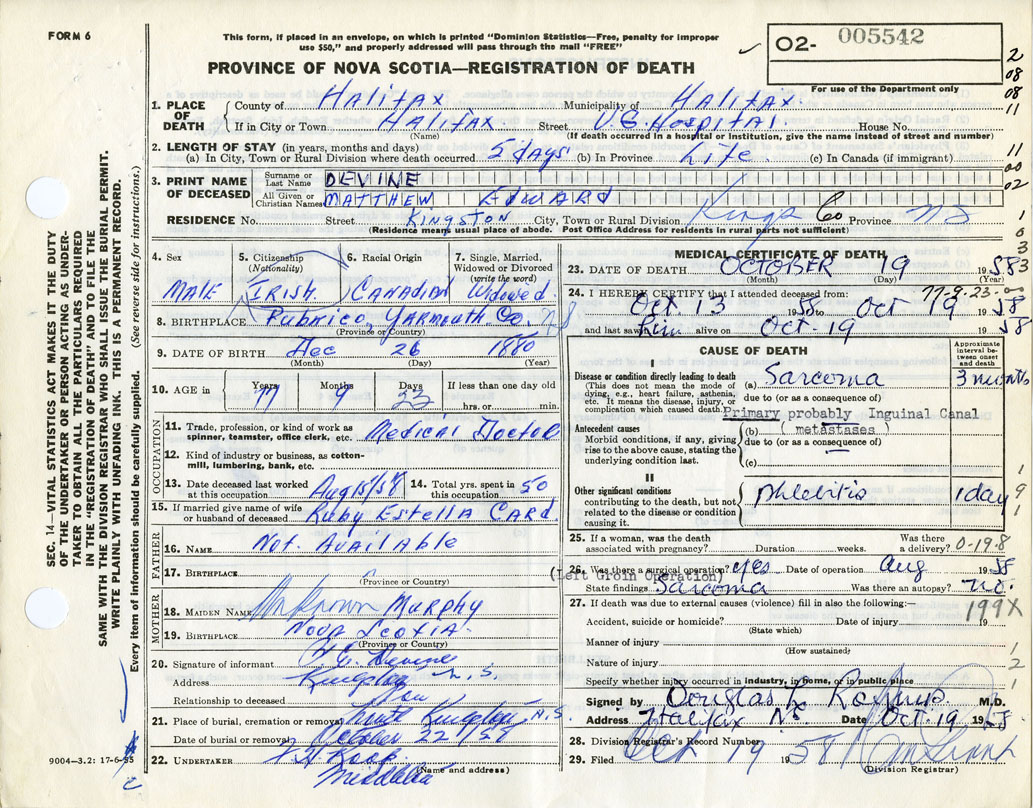 FORM 6
This form, if placed in an envelope, on which is printed "Dominion Statistics—Free, penalty for improper
use $50," and properly addressed will pass through the mail "FREE"
O2- 005542
For use of the Department only
PROVINCE OF NOVA SCOTIA—REGISTRATION OF DEATH
2
08
08
11
11
00
02
1
0
3
3
1. PLACE OF DEATH
County of Halifax Municipality of Halifax.
If in City or Town Halifax Street V.G. Hospital. House No.
(Name) (If death occurred in a hospital or institution, give the name instead of street and number)
2. LENGTH OF STAY (in years, months and days)
(a) In City, Town or Rural Division where death occurred 5 days (b) In Province Life. (c) In Canada (if immigrant)
3. PRINT NAME OF DECEASED
Surname or Last Name DEVINE
All Given or Christian Names MATTHEW EDWARD
RESIDENCE No. Street KINGSTON City, Town or Rural Division Kings Co Province NS
(Residence means usual place of abode. Post Office Address for residents in rural parts not sufficient)
SEC. 14—VITAL STATISTICS ACT MAKES IT THE DUTY
OF THE UNDERTAKER OR PERSON ACTING AS UNDER-
TAKER TO OBTAIN ALL THE PARTICULARS REQUIRED
IN THE "REGISTRATION OF DEATH" AND TO FILE THE
SAME WITH THE DIVISION REGISTRAR WHO SHALL ISSUE THE BURIAL PERMIT.
WRITE PLAINLY WITH UNFADING INK. THIS IS A PERMANENT RECORD.
Every item of information should be carefully supplied. (See reverse side for instructions.)
4. Sex
MALE
5. Citizenship
(Nationality)
IRISH.
6. Racial Origin
CANADIAN
7. Single, Married,
Widowed or Divorced
(write the word)
Widowed
8. BIRTHPLACE Pubnico, Yarmouth. Co. NS
(Province or Country)
9. DATE OF BIRTH Dec 26 1880
(Month) (Day) (Year)
10. AGE in
Years 77 Months 9 Days 23 If less than one day old
hrs. or min.
OCCUPATION
11. Trade, profession, or kind of work as
spinner, teamster, office clerk, etc. Medical Doctor
12. Kind of industry or business, as cotton-
mill, lumbering, bank, etc.
13. Date deceased last worked
at this occupation Aug 15/58
14. Total yrs. spent in
this occupation 50
15. If married give name of wife
or husband of deceased Ruby Estella Card.
FATHER
16. NAME Not. Available
17. BIRTHPLACE
(Province or Country)
MOTHER
18. MAIDEN NAME Unknown Murphy
19. BIRTHPLACE Nova Scotia.
(Province or Country)
20. Signature of informant Devine
Address Kingston N.S.
Relationship to deceased Son
21. Place of burial, cremation or removal Kingston N.S.
Date of burial or removal October 22/58
22. UNDERTAKER
(Name and address)
9004—3.2: 17-6-55
MEDICAL CERTIFICATE OF DEATH
23. DATE OF DEATH OCTOBER 19 1958
(Month) (Day) (Year)
77-9-23-00
24. I HEREBY CERTIFY that I attended deceased from:
Oct 13 1958 to Oct 19 1958
and last saw him alive on Oct-19 1958
CAUSE OF DEATH
Approximate interval be-
tween onset and death
I
Disease or condition directly leading to death
(This does not mean the mode of
dying, e.g., heart failure, asthenia,
etc. It means the disease, injury, or
complication which caused death.
(a) Sarcoma 3 months
due to (or as a consequence of)
Primary probably Inguinal Canal
Antecedent causes
Morbid conditions, if any, giving
rise to the above cause, stating the
underlying condition last.
(b) ( metastases )
due to (or as a consequence of)
(c)
II
Other significant conditions
contributing to the death, but not
related to the disease or condition
causing it.
Phlebitis 1 day
1
9
1
25. If a woman, was the death
associated with pregnancy? Duration weeks. Was there
a delivery? 0-19.8
26. Was there a surgical operation? yes Date of operation Aug 1958
(Left Groin Operation)
State findings Sarcoma Was there an autopsy? no.
27. If death was due to external causes (violence) fill in also the following:—
199X
Accident, suicide or homicide? Date of injury 19
(State which)
Manner of injury
(How sustained)
1
Nature of injury
2
Specify whether injury occurred in industry, in home, or in public place
1
Signed by Douglas L M.D.
Address Halifax NS Date Oct-19 1958
28. Division Registrar's Record Number
29. Filed Oct 19 1958
(Division Registrar)